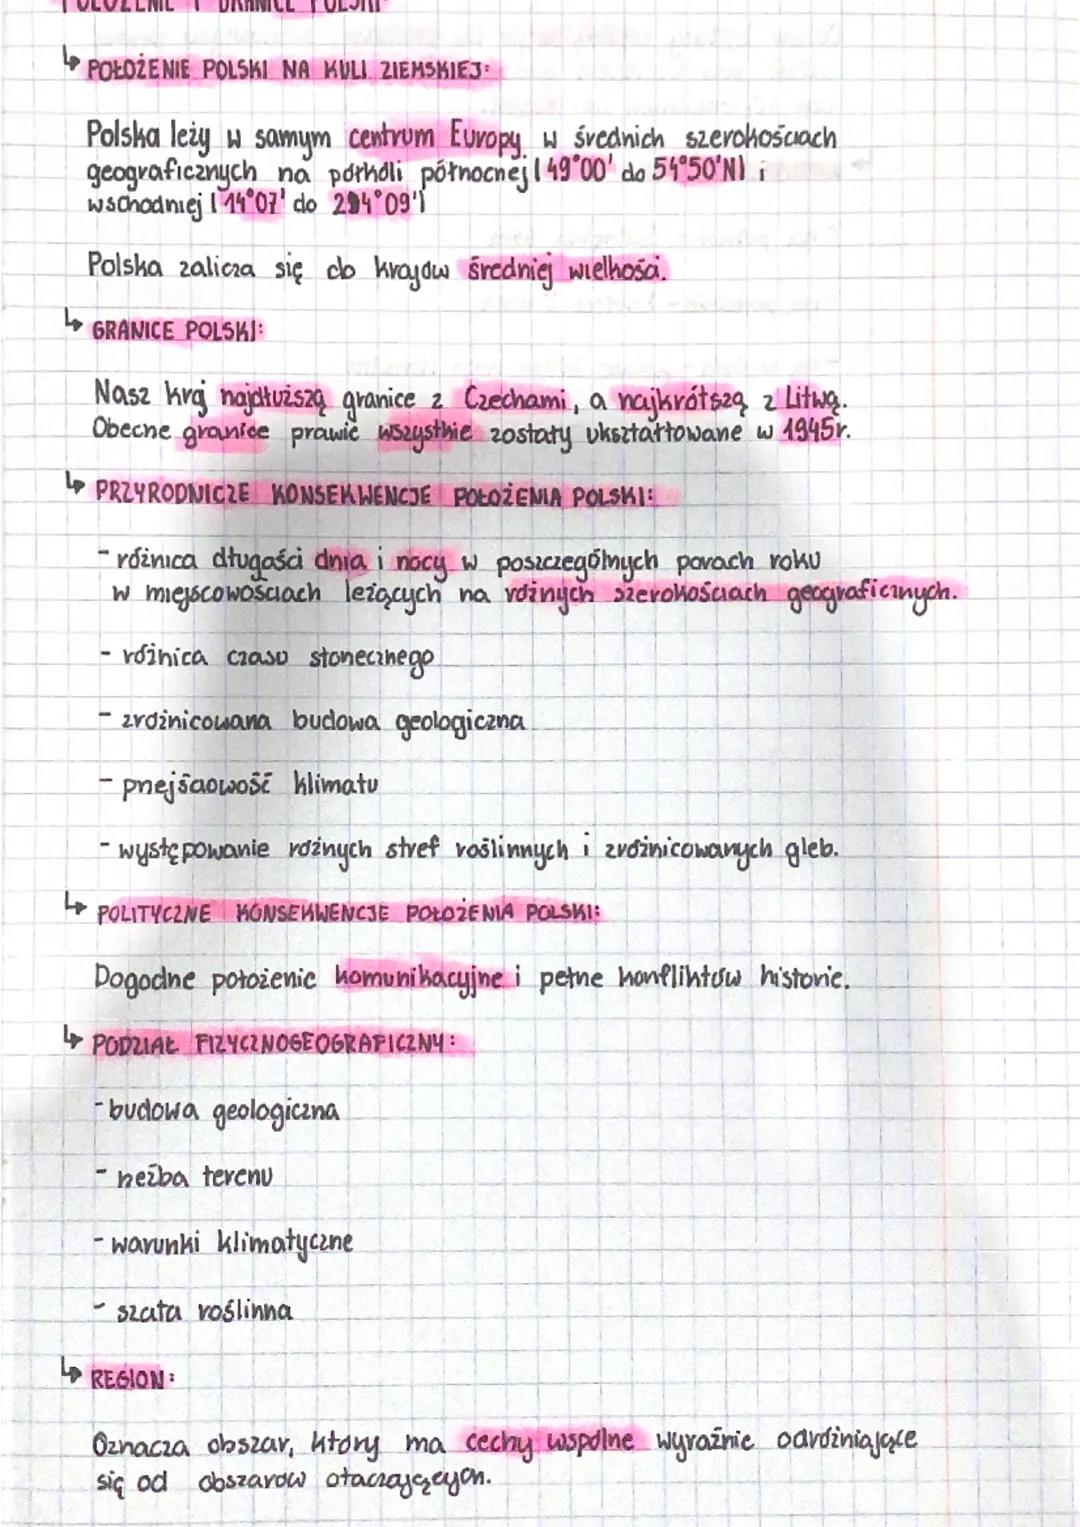 POŁOŻENIE I GRANICE POLSKI
↳ POŁOŻENIE POLSKI NA KULI ZIEMSKIEJ:
Polska leży w samym centrum Europy, w średnich szerokościach
geograficznych na półkoli północnej (49°00' do 54°50'N) i
wschodniej (14°07' do 24°09')
Polska zalicza się do krajów średniej wielkości.
↳ GRANICE POLSKI:
Nasz kraj najdłuższą granice z Czechami, a najkrótszą z Litwą.
Obecne granice prawie wszystkie zostały ukształtowane w 1945r.
↳ PRZYRODNICZE KONSEKWENCJE POŁOŻENIA POLSKI:
- różnica długości dnia i nocy w poszczególnych porach roku
w miejscowościach leżących na różnych szerokościach geograficznych.
- różnica czasu słonecznego
- zróżnicowana budowa geologiczna
- przejściowość klimatu
- występowanie różnych stref roślinnych i zróżnicowanych gleb.
↳ POLITYCZNE KONSEKWENCJE POŁOŻENIA POLSKI:
Dogodne położenie komunikacyjne i pełne konfliktów historie.
↳ PODZIAŁ FIZYCZNOGEOGRAFICZNY:
- budowa geologiczna
- rzeźba terenu
- warunki klimatyczne
- szata roślinna
↳ REGION:
Oznacza obszar, który ma cechy wspólne wyraźnie odróżniające
się od obszarów otaczających.